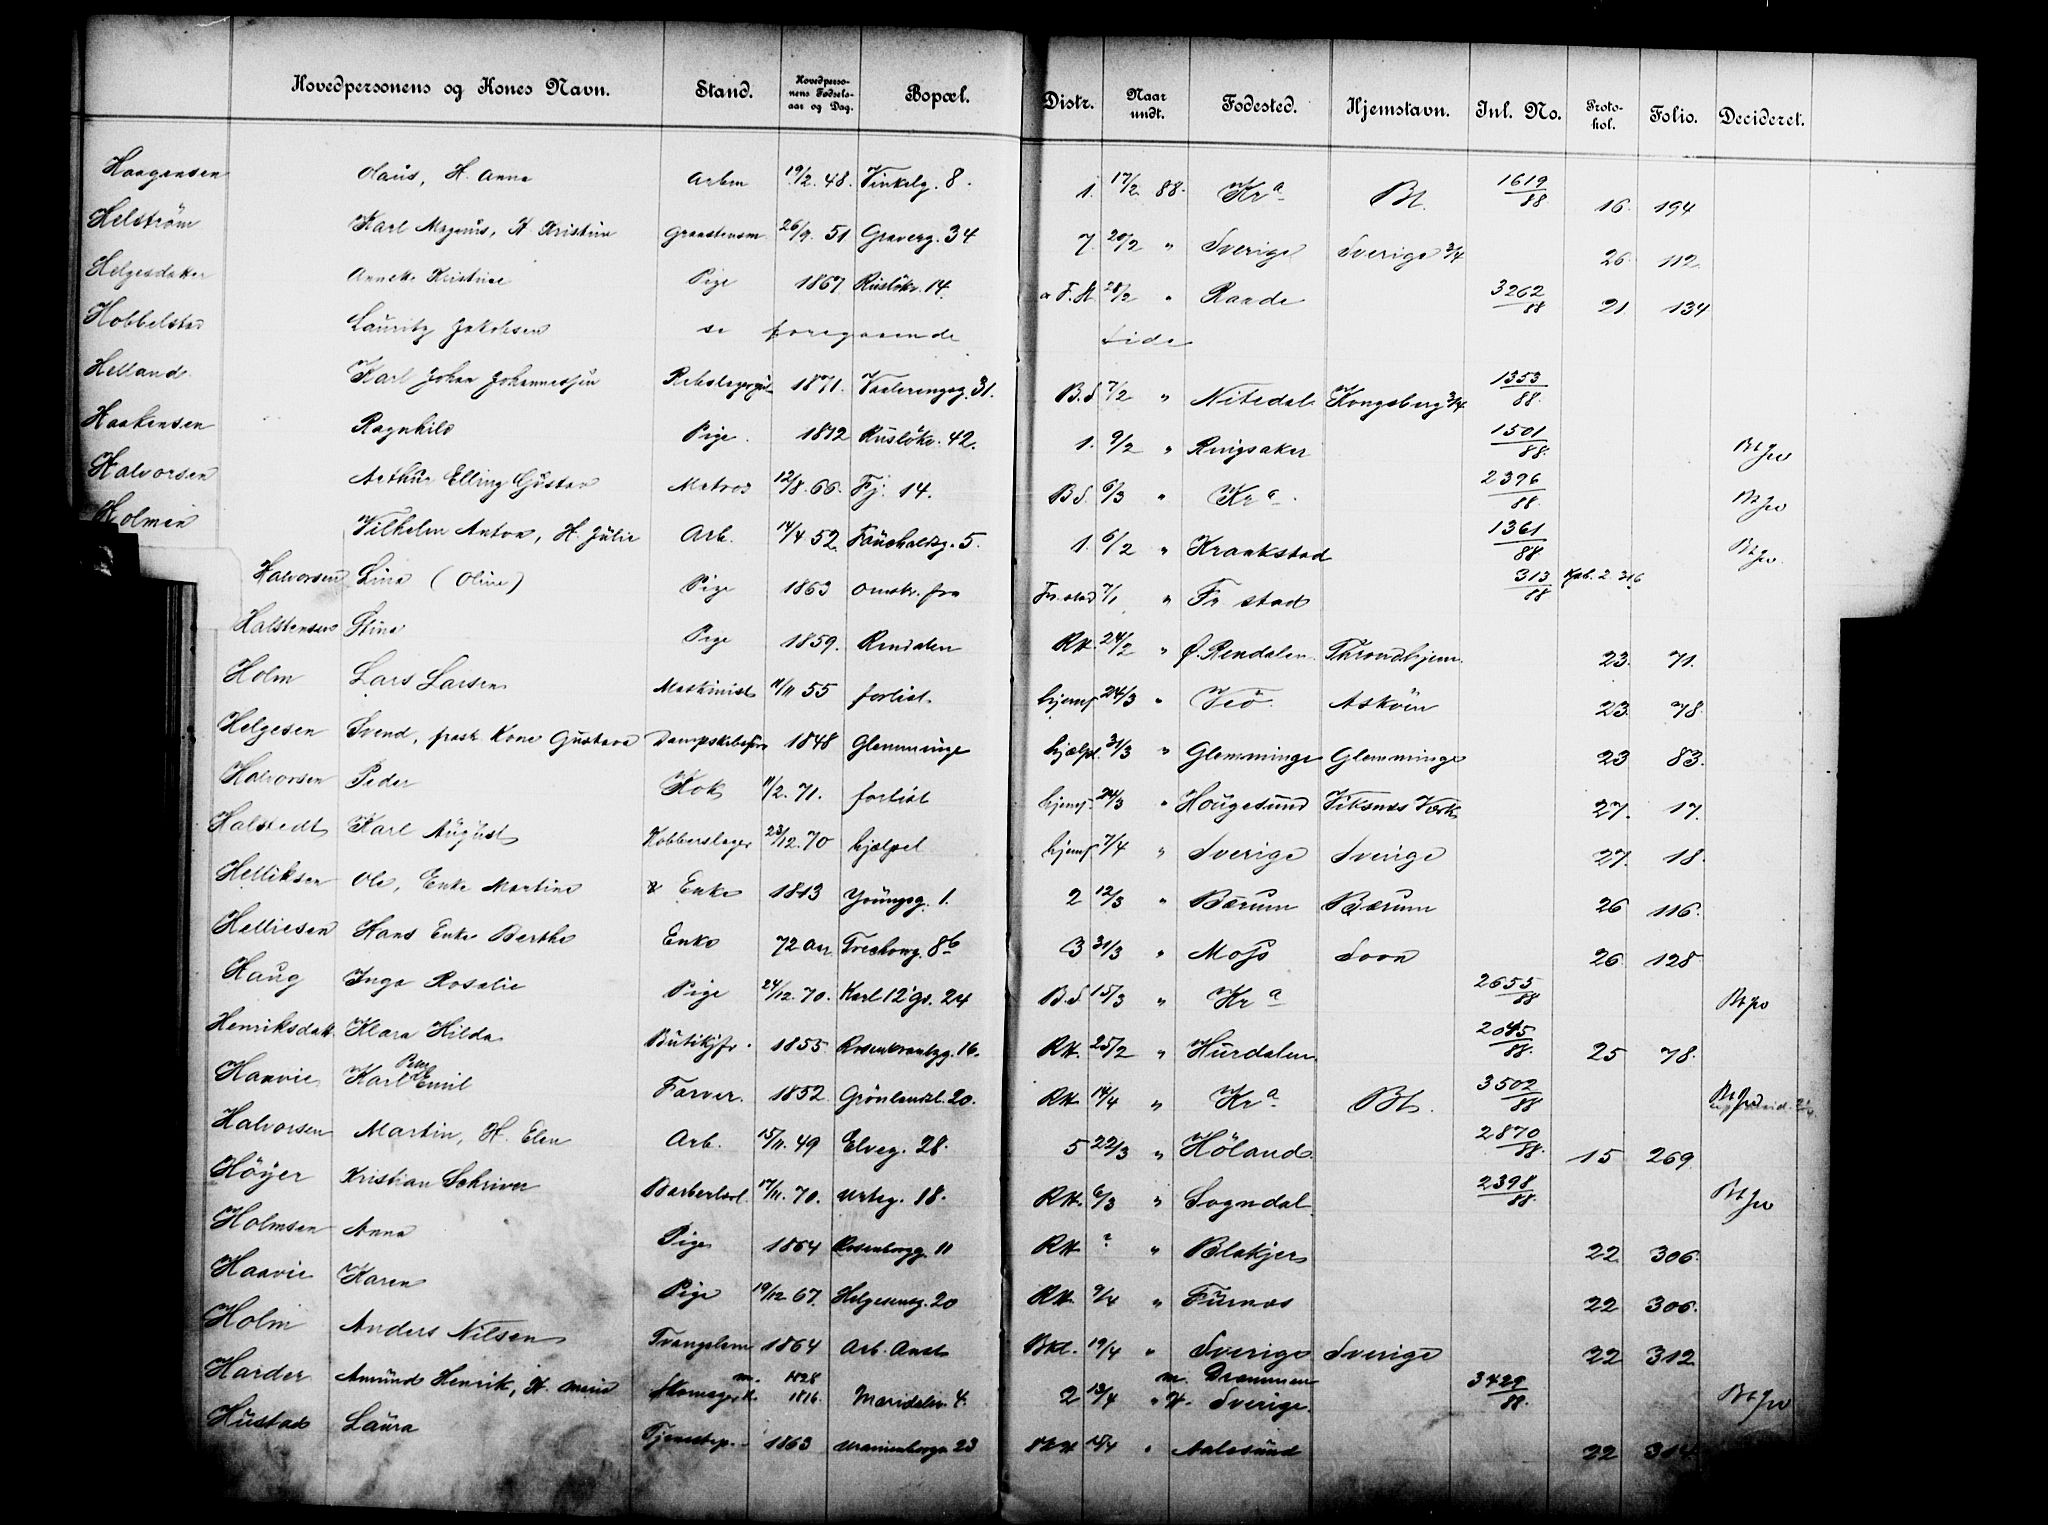 Hovedpersonens og Kones Navn. Stand. Hovedpersonens Fødselsaar og Dag. Bopæl. Distr. Naar undt. Fødested. Hjemstavn. Inl. No. Protokol. Folio. Decideret.
Haagensen Olaus, H. Anna Arbm 19/2 48. Vinkelg. 8. 1. 17/2 88. Kra Bt. 1619/88 16. 194
Helstrøm Karl Magnus, H Kristine Graastensm 26/9. 51 Graverg. 34 7. 20/2 " Sverige Sverige 3/4 26. 112.
Helgesdatter Annette Kristine Pige 1867 Rusløkv. 14. a F.A. 28/2 " Raade 3262/88 21. 134
Hobbelstad Lauritz Jakobsen se foregaaende Side
Helland Karl Johan Johannessen 1871. Vaalerengsg. 31. B.S 7/2 " Nitedal Kongsberg 3/4 1353/88.
Haakensen Ragnhild Pige. 1872 Rusløkv. 42. 1. 9/2 " Ringsaker 1501/88.
Halvorsen Arthur Elling Gustav Matros 12/8. 66. Fj. 14. B S. 6/3 " Kra. 2396/88.
Holmen Vilhelm Anton, H. Julie Arb. 14/4 52. Fauchaldsg. 5. 1. 6/2 " Kraakstad 1361/88
Halvorsen Lina (Oline) Pige 1863 omstr. fra Fr.stad 7/1 " Fr stad 313/88 Kpb. 2. 316
Halstensen Stina Pige 1859. Rendalen RH. 24/2 " Ø. Rendalen Throndhjem. 23. 71.
Holm Lars Larsen Maskinist 11/11 55 forlist. hjemf 24/3 " Veø. Askøen 23. 78.
Helgesen Svend, frask. Kone Gustava Dampskibsfører 1848 Glemminge hjælp. 31/3 " Glemminge Glemminge 23 83.
Halvorsen Peder Kok 11/2. 71. forlist hjemf. 24/3 " Haugesund Viksnæs Værk 27. 17.
Halstedt Karl August Kobberslager 23/12. 70 hjælpet hjemf 7/4 " Sverige Sverige 27. 18.
Helliksen Ole, Enke Martine Enke 1813 Youngsg. 1. 2 12/3 " Bærum Bærum 26 116.
Helliesen Hans Enke Berthe Enke 72 Aar Treshowg. 8b 3 31/3 " Moss Soon 26. 128.
Haug Inga Rosalie Pige 24/12. 70. Karl 12' gs. 24 B.S 15/3 " Kra 2655/88
Henriksdatt. Klara Hilda Butikjfr. 1855 Rosenkrantzg. 16. RH. 25/2 " Hurdalen 2045/88. 25 78.
Haavie Karl Emil Farver. 1852. Grønlandsl. 20. RH. 14/4 " Kra. Bt. 3502/88
Halvorsen Martin, H. Elen Arb. 15/11. 49 Elveg. 28. 5 22/3 " Høland. 2870/88. 15 269.
Høyer Kristian Schriver Barberlærl. 17/11. 70. Urteg. 18. RH. 6/3 " Sogndal 2398/88.
Holmsen Anna Pige 1864 Rosenborgg. 11 RH. ? " Blakjer 22. 306.
Haavie Karen Pige 19/12. 67. Helgesensg. 20 RH. 9/4 " Furnæs 22 306.
Holm Anders Nilsen Tvangslem 1864 Arb. Anst. Bkl. 19/4 " Sverige Sverige 22 312
Harder Amund Henrik, H. Marie Skomager m. 1828 H. 1816. Maridalsv. 4. 2 13/4 " m. Drammen H. Sverige. 3429/88.
Hustad Laura Tjenestep. 1863 Uranienborgv. 23 RH 15/4 " Aalesund 22 314